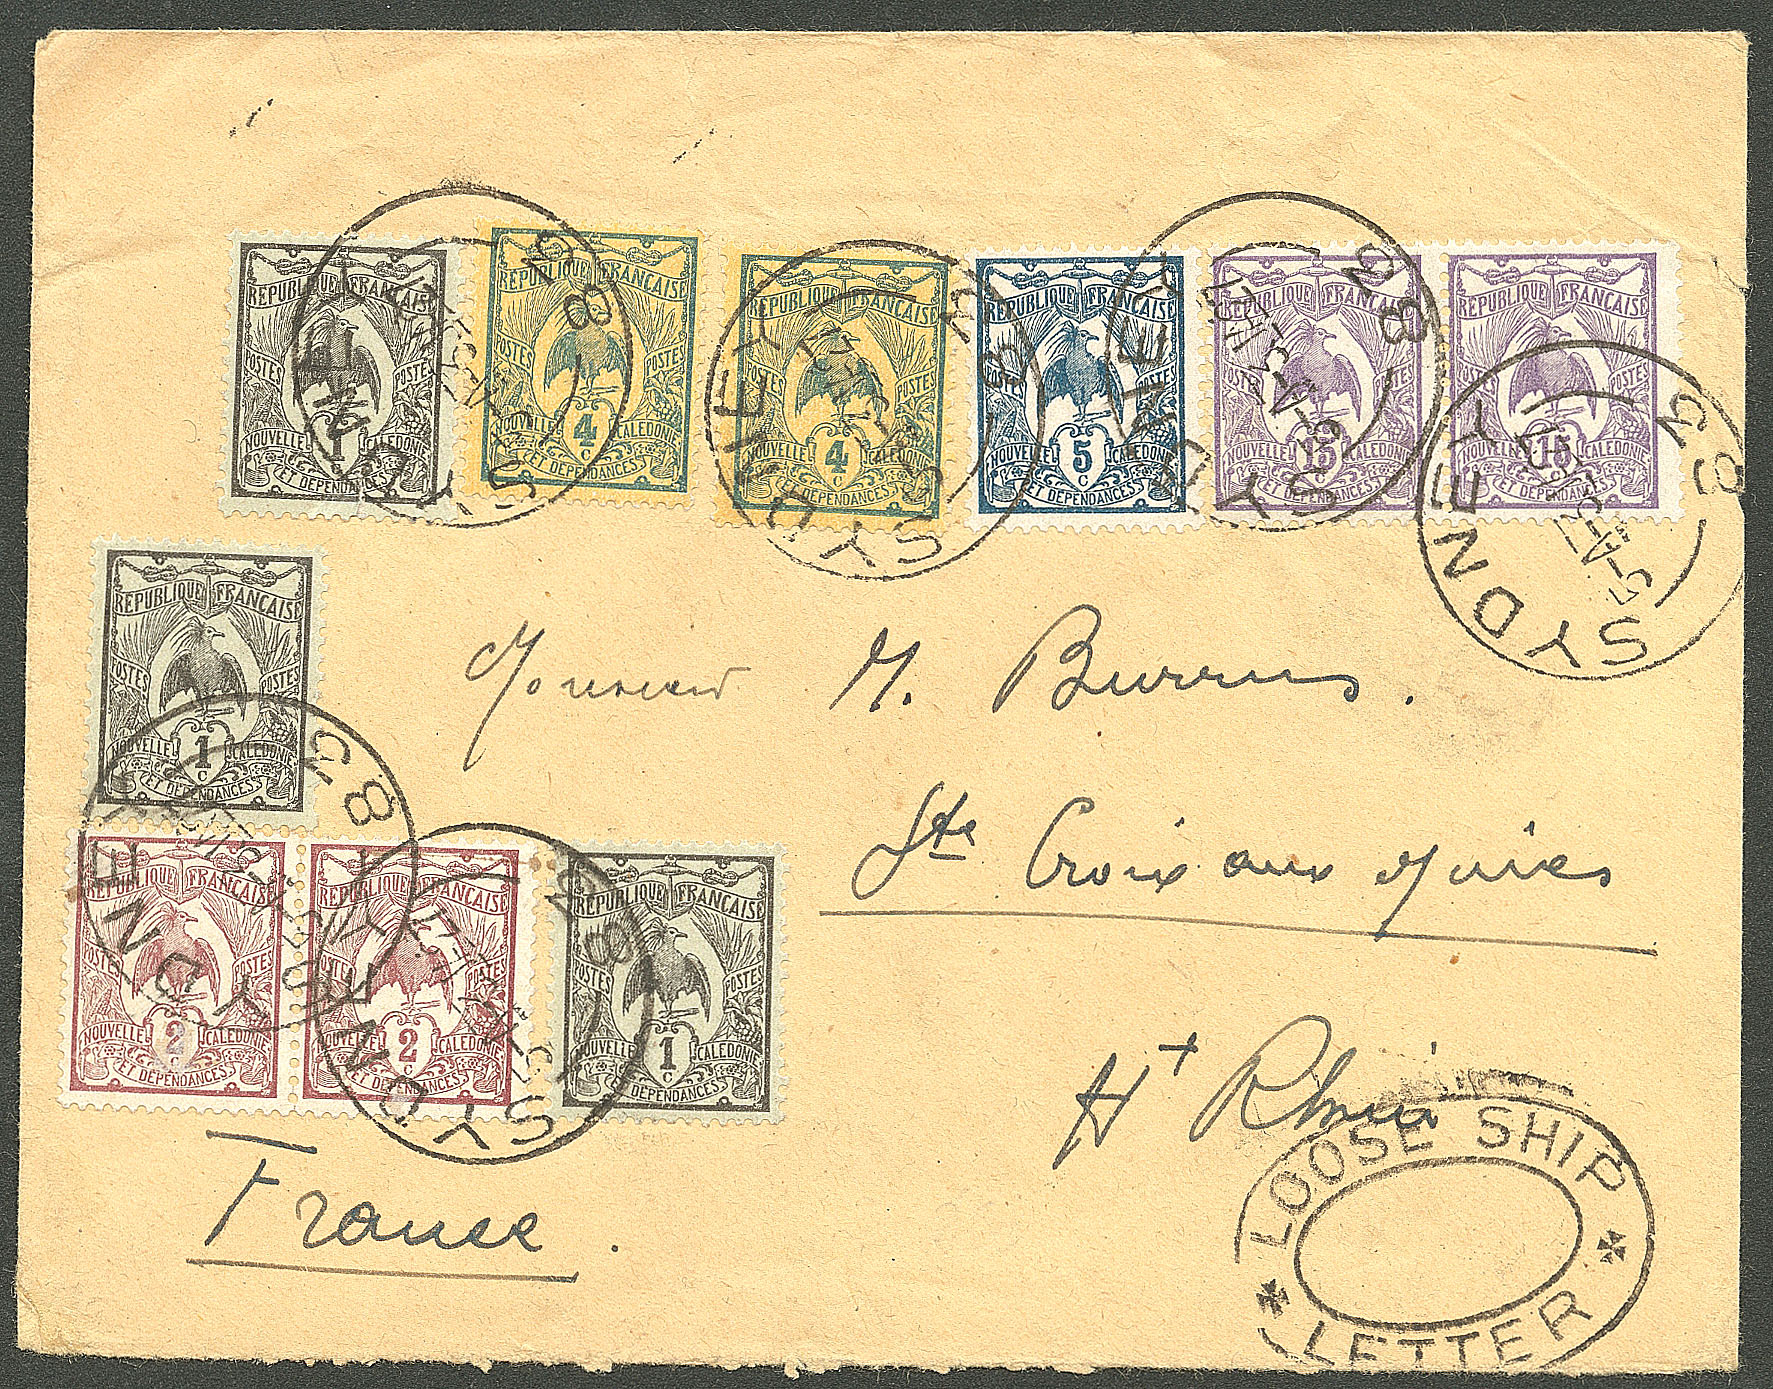 REPUBLIQUE FRANÇAISE
POSTES POSTES
1 c
NOUVELLE CALEDONIE
ET DEPENDANCES
REPUBLIQUE FRANÇAISE
POSTES POSTES
4 c
NOUVELLE CALEDONIE
ET DEPENDANCES
REPUBLIQUE FRANÇAISE
POSTES POSTES
4 c
NOUVELLE CALEDONIE
ET DEPENDANCES
REPUBLIQUE FRANÇAISE
POSTES POSTES
5 c
NOUVELLE CALEDONIE
ET DEPENDANCES
REPUBLIQUE FRANÇAISE
POSTES POSTES
15 c
NOUVELLE CALEDONIE
ET DEPENDANCES
REPUBLIQUE FRANÇAISE
POSTES POSTES
15 c
NOUVELLE CALEDONIE
ET DEPENDANCES
SYDNEY
SYDNEY
SYDNEY
SYDNEY
REPUBLIQUE FRANÇAISE
POSTES POSTES
1 c
NOUVELLE CALEDONIE
ET DEPENDANCES
Monsieur M. Burrus.
Ste Croix aux Mines
Ht Rhin
France.
REPUBLIQUE FRANÇAISE
POSTES POSTES
2 c
NOUVELLE CALEDONIE
ET DEPENDANCES
REPUBLIQUE FRANÇAISE
POSTES POSTES
2 c
NOUVELLE CALEDONIE
ET DEPENDANCES
REPUBLIQUE FRANÇAISE
POSTES POSTES
1 c
NOUVELLE CALEDONIE
ET DEPENDANCES
SYDNEY
SYDNEY
LOOSE SHIP
LETTER